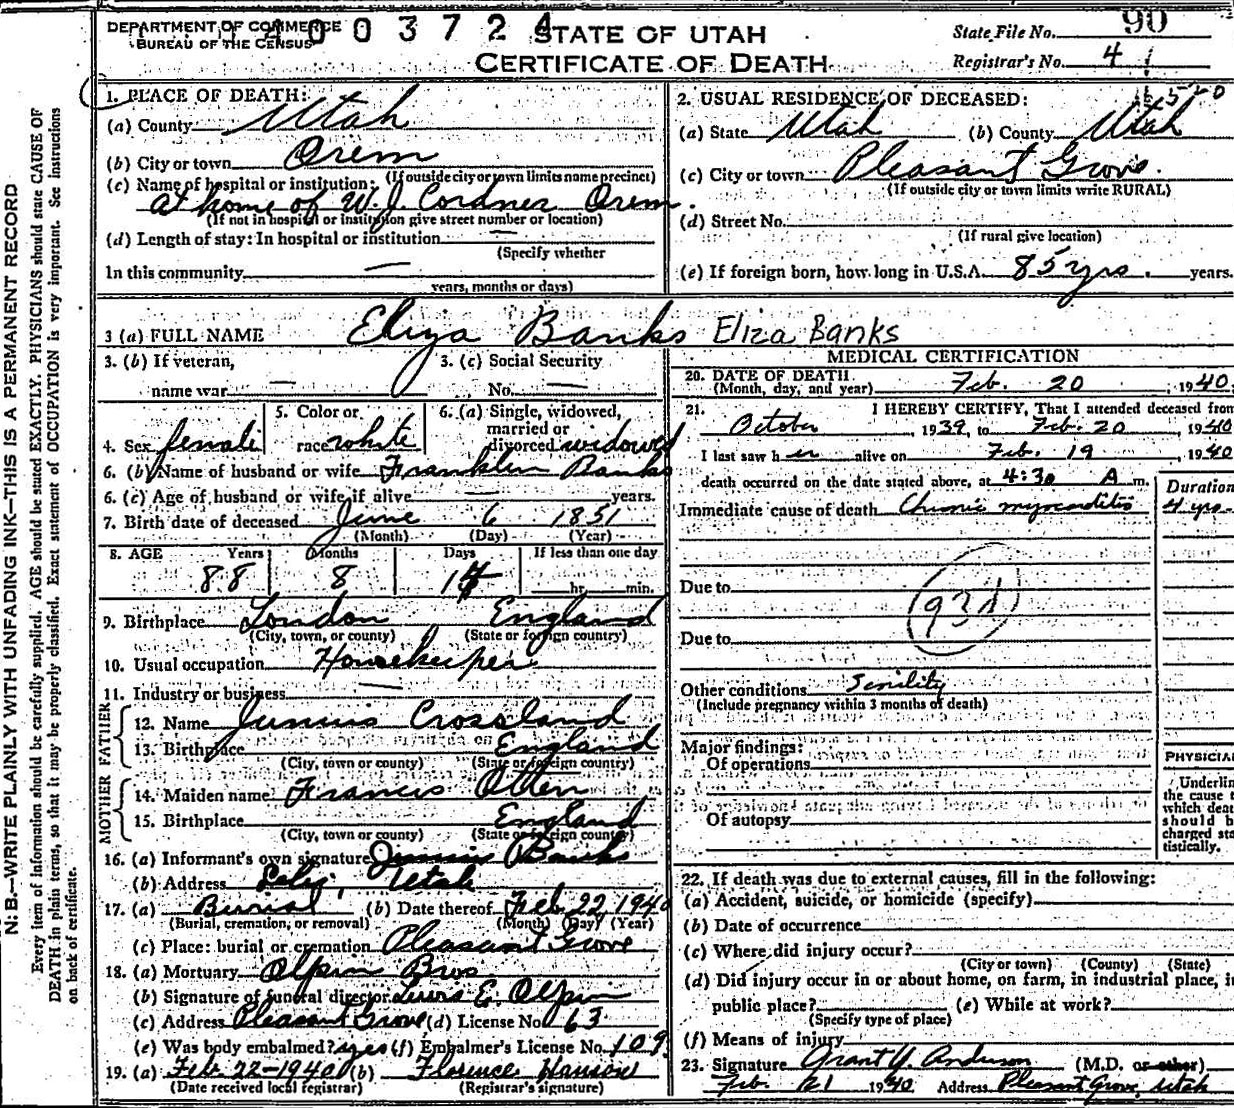 DEPARTMENT OF COMMERCE
BUREAU OF THE CENSUS
4003724
STATE OF UTAH
CERTIFICATE OF DEATH
State File No. 90
Registrar's No. 4
N. B.—WRITE PLAINLY WITH UNFADING INK—THIS IS A PERMANENT RECORD
Every item of information should be carefully supplied. AGE should be stated EXACTLY. PHYSICIANS should state CAUSE OF
DEATH in plain terms, so that it may be properly classified. Exact statement of OCCUPATION is very important. See instructions
on back of certificate.
1. PLACE OF DEATH:
(a) County Utah
(b) City or town Orem
(If outside city or town limits name precinct)
(c) Name of hospital or institution:
at home of W. J. Cordner Orem.
(If not in hospital or institution give street number or location)
(d) Length of stay: In hospital or institution —
(Specify whether
In this community —
years, months or days)
2. USUAL RESIDENCE OF DECEASED:
(a) State Utah (b) County Utah
(c) City or town Pleasant Grove.
(If outside city or town limits write RURAL)
(d) Street No.
(If rural give location)
(e) If foreign born, how long in U.S.A. 85 yrs. years.
3 (a) FULL NAME Eliza Banks Eliza Banks
3. (b) If veteran, 3. (c) Social Security
name war — No. —
4. Sex female
5. Color or
race white
6. (a) Single, widowed,
married or
divorced widowed
6. (b) Name of husband or wife Franklin Banks
6. (c) Age of husband or wife if alive — years.
7. Birth date of deceased June 6 1851
(Month) (Day) (Year)
8. AGE Years Months Days If less than one day
88 8 14 hr. min.
9. Birthplace London England
(City, town, or county) (State or foreign country)
10. Usual occupation Housekeeper
11. Industry or business —
FATHER
12. Name Junius Crossland
13. Birthplace England
(City, town or county) (State or foreign country)
MOTHER
14. Maiden name Francis Otten
15. Birthplace England
(City, town or county) (State or foreign country)
16. (a) Informant's own signature Junius Banks
(b) Address Lehi, Utah
17. (a) Burial (b) Date thereof Feb 22, 1940
(Burial, cremation, or removal) (Month) (Day) (Year)
(c) Place: burial or cremation Pleasant Grove
18. (a) Mortuary Olpin Bros
(b) Signature of funeral director Lewis E. Olpin
(c) Address Pleasant Grove (d) License No. 63
(e) Was body embalmed? yes (f) Embalmer's License No. 109
19. (a) Feb 22-1940 (b) Florence Hanson
(Date received local registrar) (Registrar's signature)
MEDICAL CERTIFICATION
20. DATE OF DEATH
(Month, day, and year) Feb. 20, 1940.
21. I HEREBY CERTIFY, That I attended deceased from
October, 1939, to Feb. 20, 1940
I last saw her alive on Feb. 19, 1940
death occurred on the date stated above, at 4:30 A m.
Duration
Immediate cause of death Chronic myocarditis 4 yrs.
Due to
93d
Due to
Other conditions Senility
(Include pregnancy within 3 months of death)
Major findings:
Of operations
Of autopsy
PHYSICIA
Underlin
the cause t
which deat
should b
charged sta
tistically.
22. If death was due to external causes, fill in the following:
(a) Accident, suicide, or homicide (specify)
(b) Date of occurrence
(c) Where did injury occur?
(City or town) (County) (State)
(d) Did injury occur in or about home, on farm, in industrial place, i
public place? (e) While at work?
(Specify type of place)
(f) Means of injury
23. Signature Grant Y. Anderson (M.D. or other)
Feb. 21 1940 Address Pleasant Grove, Utah